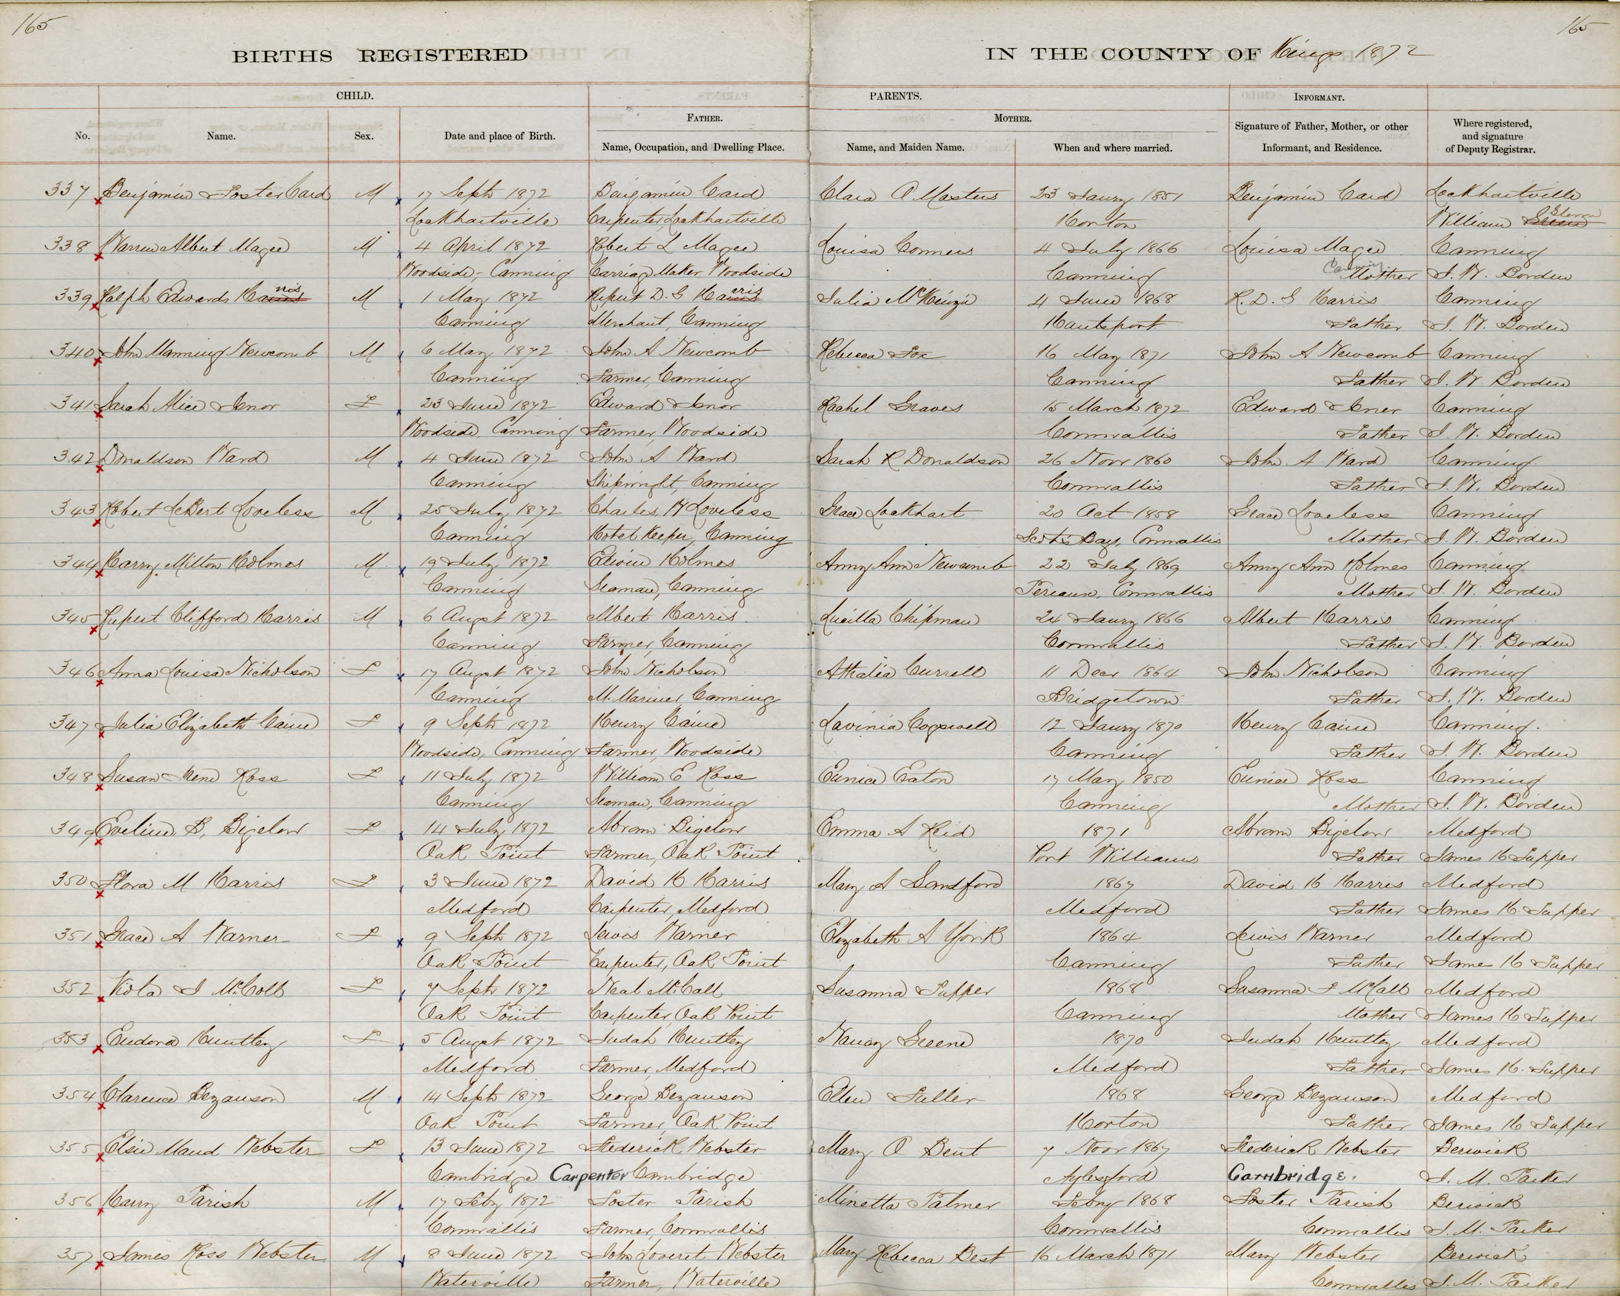 165
165
BIRTHS REGISTERED
IN THE COUNTY OF Kings 1872
CHILD.
PARENTS.
INFORMANT.
FATHER.
MOTHER.
No.
Name.
Sex.
Date and place of Birth.
Name, Occupation, and Dwelling Place.
Name, and Maiden Name.
When and where married.
Signature of Father, Mother, or other Informant, and Residence.
Where registered, and signature of Deputy Registrar.
337 Benjamin Foster Card M 17 Sept 1872 Benjamin Card Clara A Masters 23 Jany 1851 Benjamin Card Lockhartville
Lockhartville Carpenter Lockhartville Horton William
338 Warren Albert Magee M 4 April 1872 Robert L Magee Louisa Conners 4 July 1866 Louisa Magee Canning
Woodside-Canning Carriag Maker Woodside Canning Mother J. W. Borden
339 Ralph Edwards M 1 May 1872 Rupert D. G Harris Julia McKinzie 4 June 1868 R. D. G Harris Canning
Canning Merchant, Canning Hantsport Father J. W. Borden
340 John Manning Newcomb M 6 May 1872 John A Newcomb Rebecca Fox 16 May 1871 John A Newcomb Canning
Canning Farmer, Canning Canning Father J. W. Borden
341 Sarah Alice Jenor F 23 June 1872 Edward Jenor Rachel Graves 15 March 1872 Edward Jener Canning
Woodside, Canning Farmer, Woodside Cornwallis Father J. W. Borden
342 Donaldson Ward M 4 June 1872 John A Ward Sarah R Donaldson 26 Novr 1860 John A Ward Canning
Canning Shipwright, Canning Cornwallis Father J. W. Borden
343 Robert LeBert Loveless M 25 July 1872 Charles H Loveless Grace Lockhart 20 Oct 1858 Grace Loveless Canning
Canning Hotel Keeper, Canning Scots Bay, Cornwallis Mother J. W. Borden
344 Harry Milton Holmes M 19 July 1872 Edwin Holmes Anny Ann Newcomb 22 July 1869 Anny Ann Holmes Canning
Canning Seaman, Canning Pereaux, Cornwallis Mother J. W. Borden
345 Rupert Clifford Harris M 6 Augst 1872 Albert Harris Lucilla Chipman 24 Jany 1866 Albert Harris Canning
Canning Farmer, Canning Cornwallis Father J. W. Borden
346 Anna Louisa Nicholson F 17 Augst 1872 John Nicholson Athalia Currell 11 Decr 1864 John Nicholson Canning
Canning M. Mariner Canning Bridgetown Father J. W. Borden
347 Julia Elizabeth Caine F 9 Sept 1872 Henry Caine Lavinia Cogswell 12 Jany 1870 Henry Caine Canning.
Woodside, Canning Farmer, Woodside Canning Father J. W. Borden
348 Susan Irene Ross F 11 July 1872 William E Ross Eunice Eaton 17 May 1850 Eunice Ross Canning
Canning Seaman, Canning Canning Mother J. W. Borden
349 Eveline B. Bigelow F 14 July 1872 Abram Bigelow Emma A Reid 1871 Abram Bigelow Medford
Oak Point Farmer, Oak Point Port Williams Father James H Tupper
350 Flora M Harris F 3 June 1872 David H Harris Mary A Sandford 1867 David H Harris Medford
Medford Carpenter, Medford Medford Father James H Tupper
351 Grace A Warner F 9 Sept 1872 Lewis Warner Elizabeth A York 1864 Lewis Warner Medford
Oak Point Carpenter, Oak Point Canning Father James H Tupper
352 Viola J McCall F 7 Sept 1872 Neal McCall Susanna Tupper 1868 Susanna F McCall Medford
Oak Point Carpenter, Oak Point Canning Mother James H Tupper
353 Eudora Huntley F 5 Augst 1872 Judah Huntley Nancy Greene 1870 Judah Huntley Medford
Medford Farmer, Medford Medford Father James H. Tupper
354 Clarence Bezanson M 14 Sept 1872 George Bezanson Ellen Fuller 1868 George Bezanson Medford
Oak Point Farmer, Oak Point Horton Father James H Tupper
355 Elsie Maud Webster F 13 June 1872 Frederick Webster Mary O Bent 7 Novr 1867 Frederick Webster Berwick
Cambridge Carpenter Cambridge Aylesford Cambridge. J. M. Parker
356 Harry Parish M 17 Feby 1872 Foster Parish Minetta Palmer Feby 1868 Foster Parish Berwick
Cornwallis Farmer, Cornwallis Cornwallis Cornwallis J. M. Parker
357 James Ross Webster M 8 June 1872 John Loveret Webster Mary Rebecca Best 16 March 1871 Mary Webster Berwick
Waterville Farmer, Waterville Cornwallis J. M. Parker